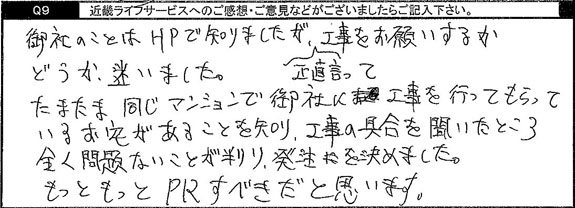 Q9 近畿ライフサービスへのご感想・ご意見などがございましたらご記入下さい。
御社のことはHPで知りましたが、工事をお願いするか
どうか、迷いました。 正直言って
たまたま同じマンションで御社に工事を行ってもらって
いるお宅があることを知り、工事の具合を聞いたところ
全く問題ないことが判り、発注を決めました。
もっともっとPRすべきだと思います。